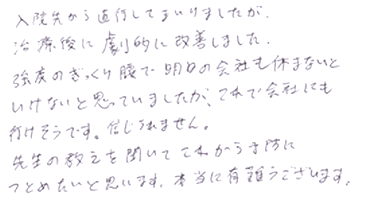 入院先から直行してまいりましたが、
治療後に劇的に改善しました.
強度のぎっくり腰で明日の会社も休まないと
いけないと思っていましたが、これで会社にも
行けそうです。信じられません。
先生の教えを聞いてこれから予防に
つとめたいと思います. 本当に有難うございます.